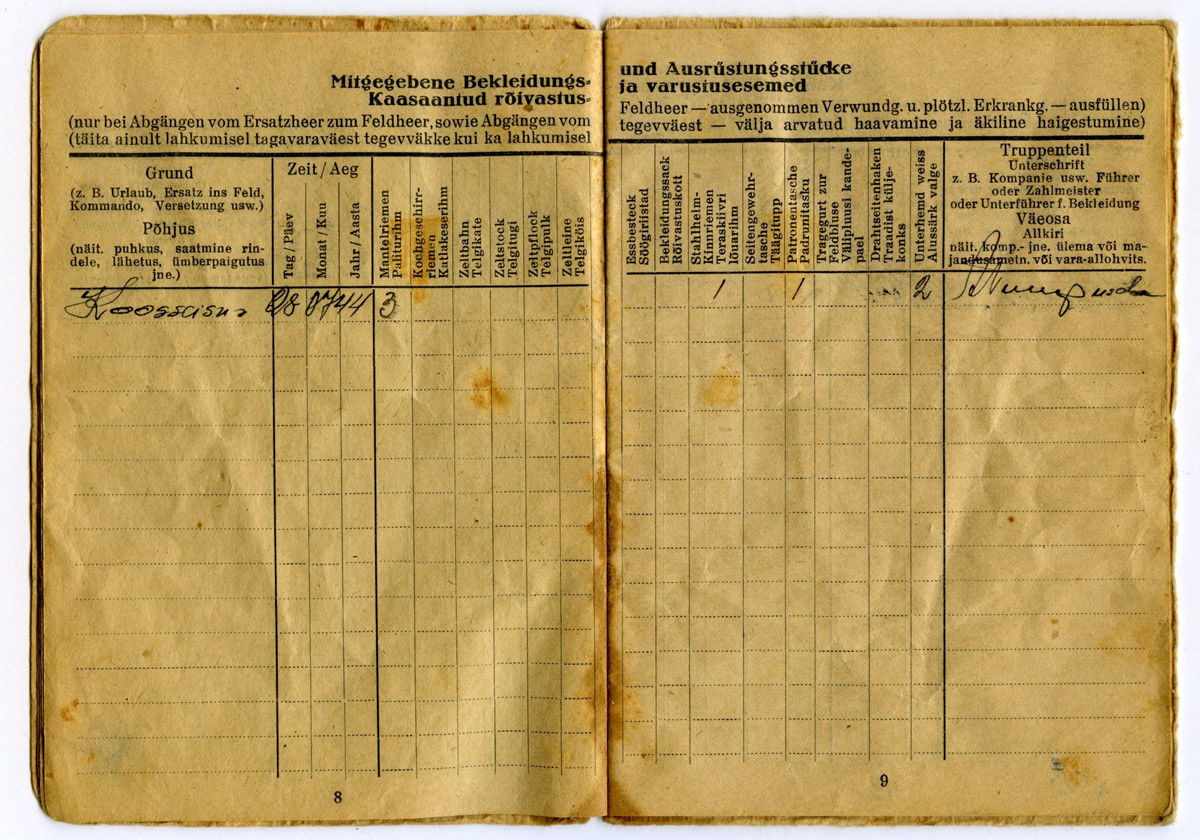 Mitgegebene Bekleidungs-
Kaasaantud rõivastus-
(nur bei Abgängen vom Ersatzheer zum Feldheer, sowie Abgängen vom
(täita ainult lahkumisel tagavaraväest tegevväkke kui ka lahkumisel
Grund
(z. B. Urlaub, Ersatz ins Feld,
Kommando, Versetzung usw.)
Põhjus
(näit. puhkus, saatmine rin-
dele, lähetus, ümberpaigutus
jne.)
Zeit / Aeg
Tag / Päev
Monat / Kuu
Jahr / Aasta
Mantelriemen
Paliturihm
Kochgeschirr-
riemen
Katlakeserihm
Zeltbahn
Telgikate
Zeltstock
Telgitugi
Zeltpflock
Telgipulk
Zeltleine
Telgiköis
28 07 44 3
8
und Ausrüstungsstücke
ja varustusesemed
Feldheer — ausgenommen Verwundg. u. plötzl. Erkrankg. — ausfüllen)
tegevväest — välja arvatud haavamine ja äkiline haigestumine)
Essbesteck
Söögiriistad
Bekleidungssack
Rõivastuskott
Stahlhelm-
Kinnriemen
Teraskiivri
lõuarihm
Seitengewehr-
tasche
Täägitupp
Patronentasche
Padrunitasku
Tragegurt zur
Feldbluse
Välipluusi kande-
pael
Drahtseitenhaken
Traadist külje-
konks
Unterhemd weiss
Alussärk valge
Truppenteil
Unterschrift
z. B. Kompanie usw. Führer
oder Zahlmeister
oder Unterführer f. Bekleidung
Väeosa
Allkiri
näit. komp.- jne. ülema või ma-
jandusametn. või vara-allohvits.
1 1 2
9